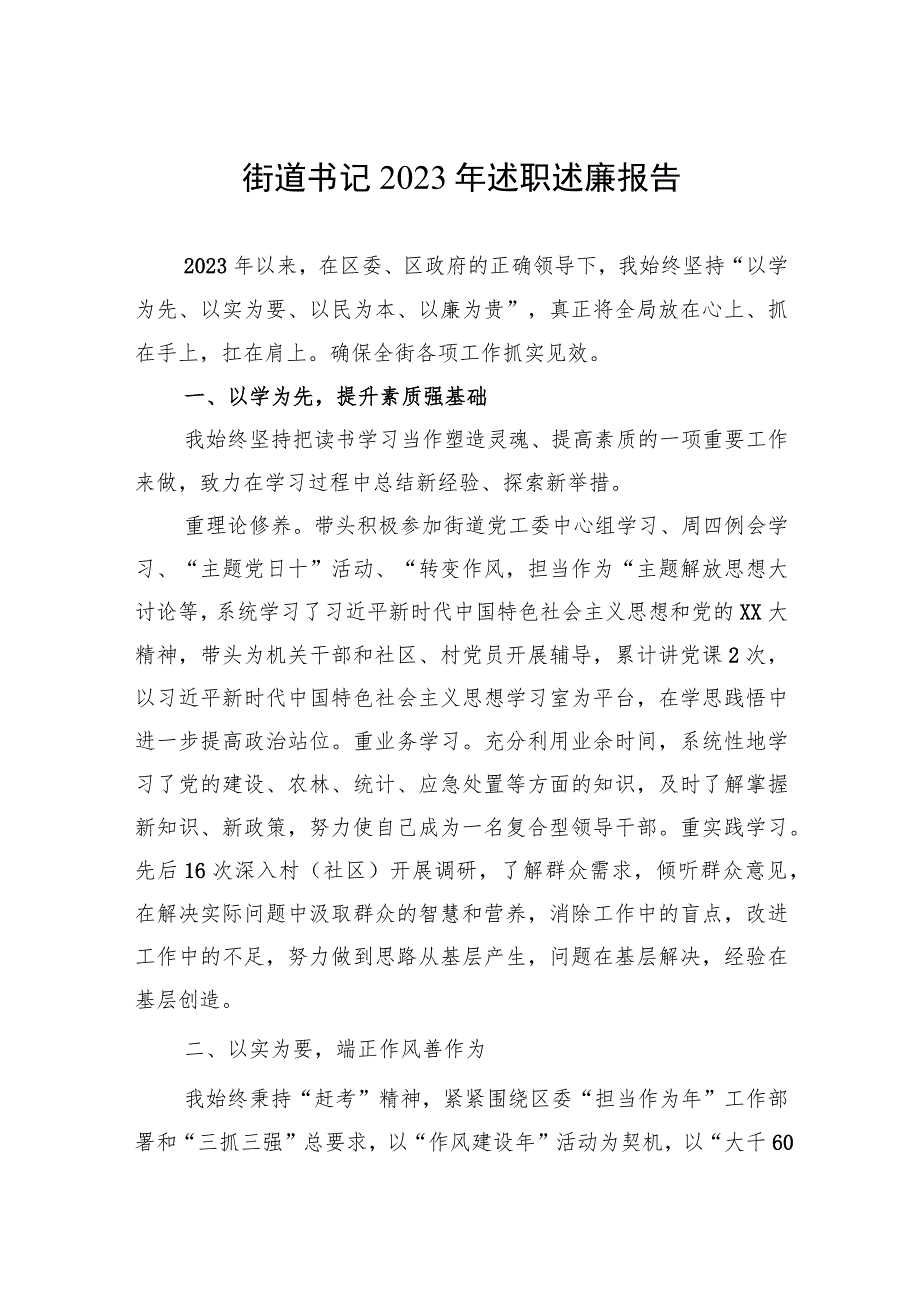 街道书记 2023 年述职述廉报告
2023 年以来，在区委、区政府的正确领导下，我始终坚持“以学
为先、以实为要、以民为本、以廉为贵”，真正将全局放在心上、抓
在手上，扛在肩上。确保全街各项工作抓实见效。
一、以学为先，提升素质强基础
我始终坚持把读书学习当作塑造灵魂、提高素质的一项重要工作
来做，致力在学习过程中总结新经验、探索新举措。
重理论修养。带头积极参加街道党工委中心组学习、周四例会学
习、“主题党日十”活动、“转变作风，担当作为“主题解放思想大
讨论等，系统学习了习近平新时代中国特色社会主义思想和党的 XX 大
精神，带头为机关干部和社区、村党员开展辅导，累计讲党课 2 次，
以习近平新时代中国特色社会主义思想学习室为平台，在学思践悟中
进一步提高政治站位。重业务学习。充分利用业余时间，系统性地学
习了党的建设、农林、统计、应急处置等方面的知识，及时了解掌握
新知识、新政策，努力使自己成为一名复合型领导干部。重实践学习。
先后 16 次深入村（社区）开展调研，了解群众需求，倾听群众意见，
在解决实际问题中汲取群众的智慧和营养，消除工作中的盲点，改进
工作中的不足，努力做到思路从基层产生，问题在基层解决，经验在
基层创造。
二、以实为要，端正作风善作为
我始终秉持“赶考”精神，紧紧围绕区委“担当作为年”工作部
署和“三抓三强”总要求，以“作风建设年”活动为契机，以“大千 60